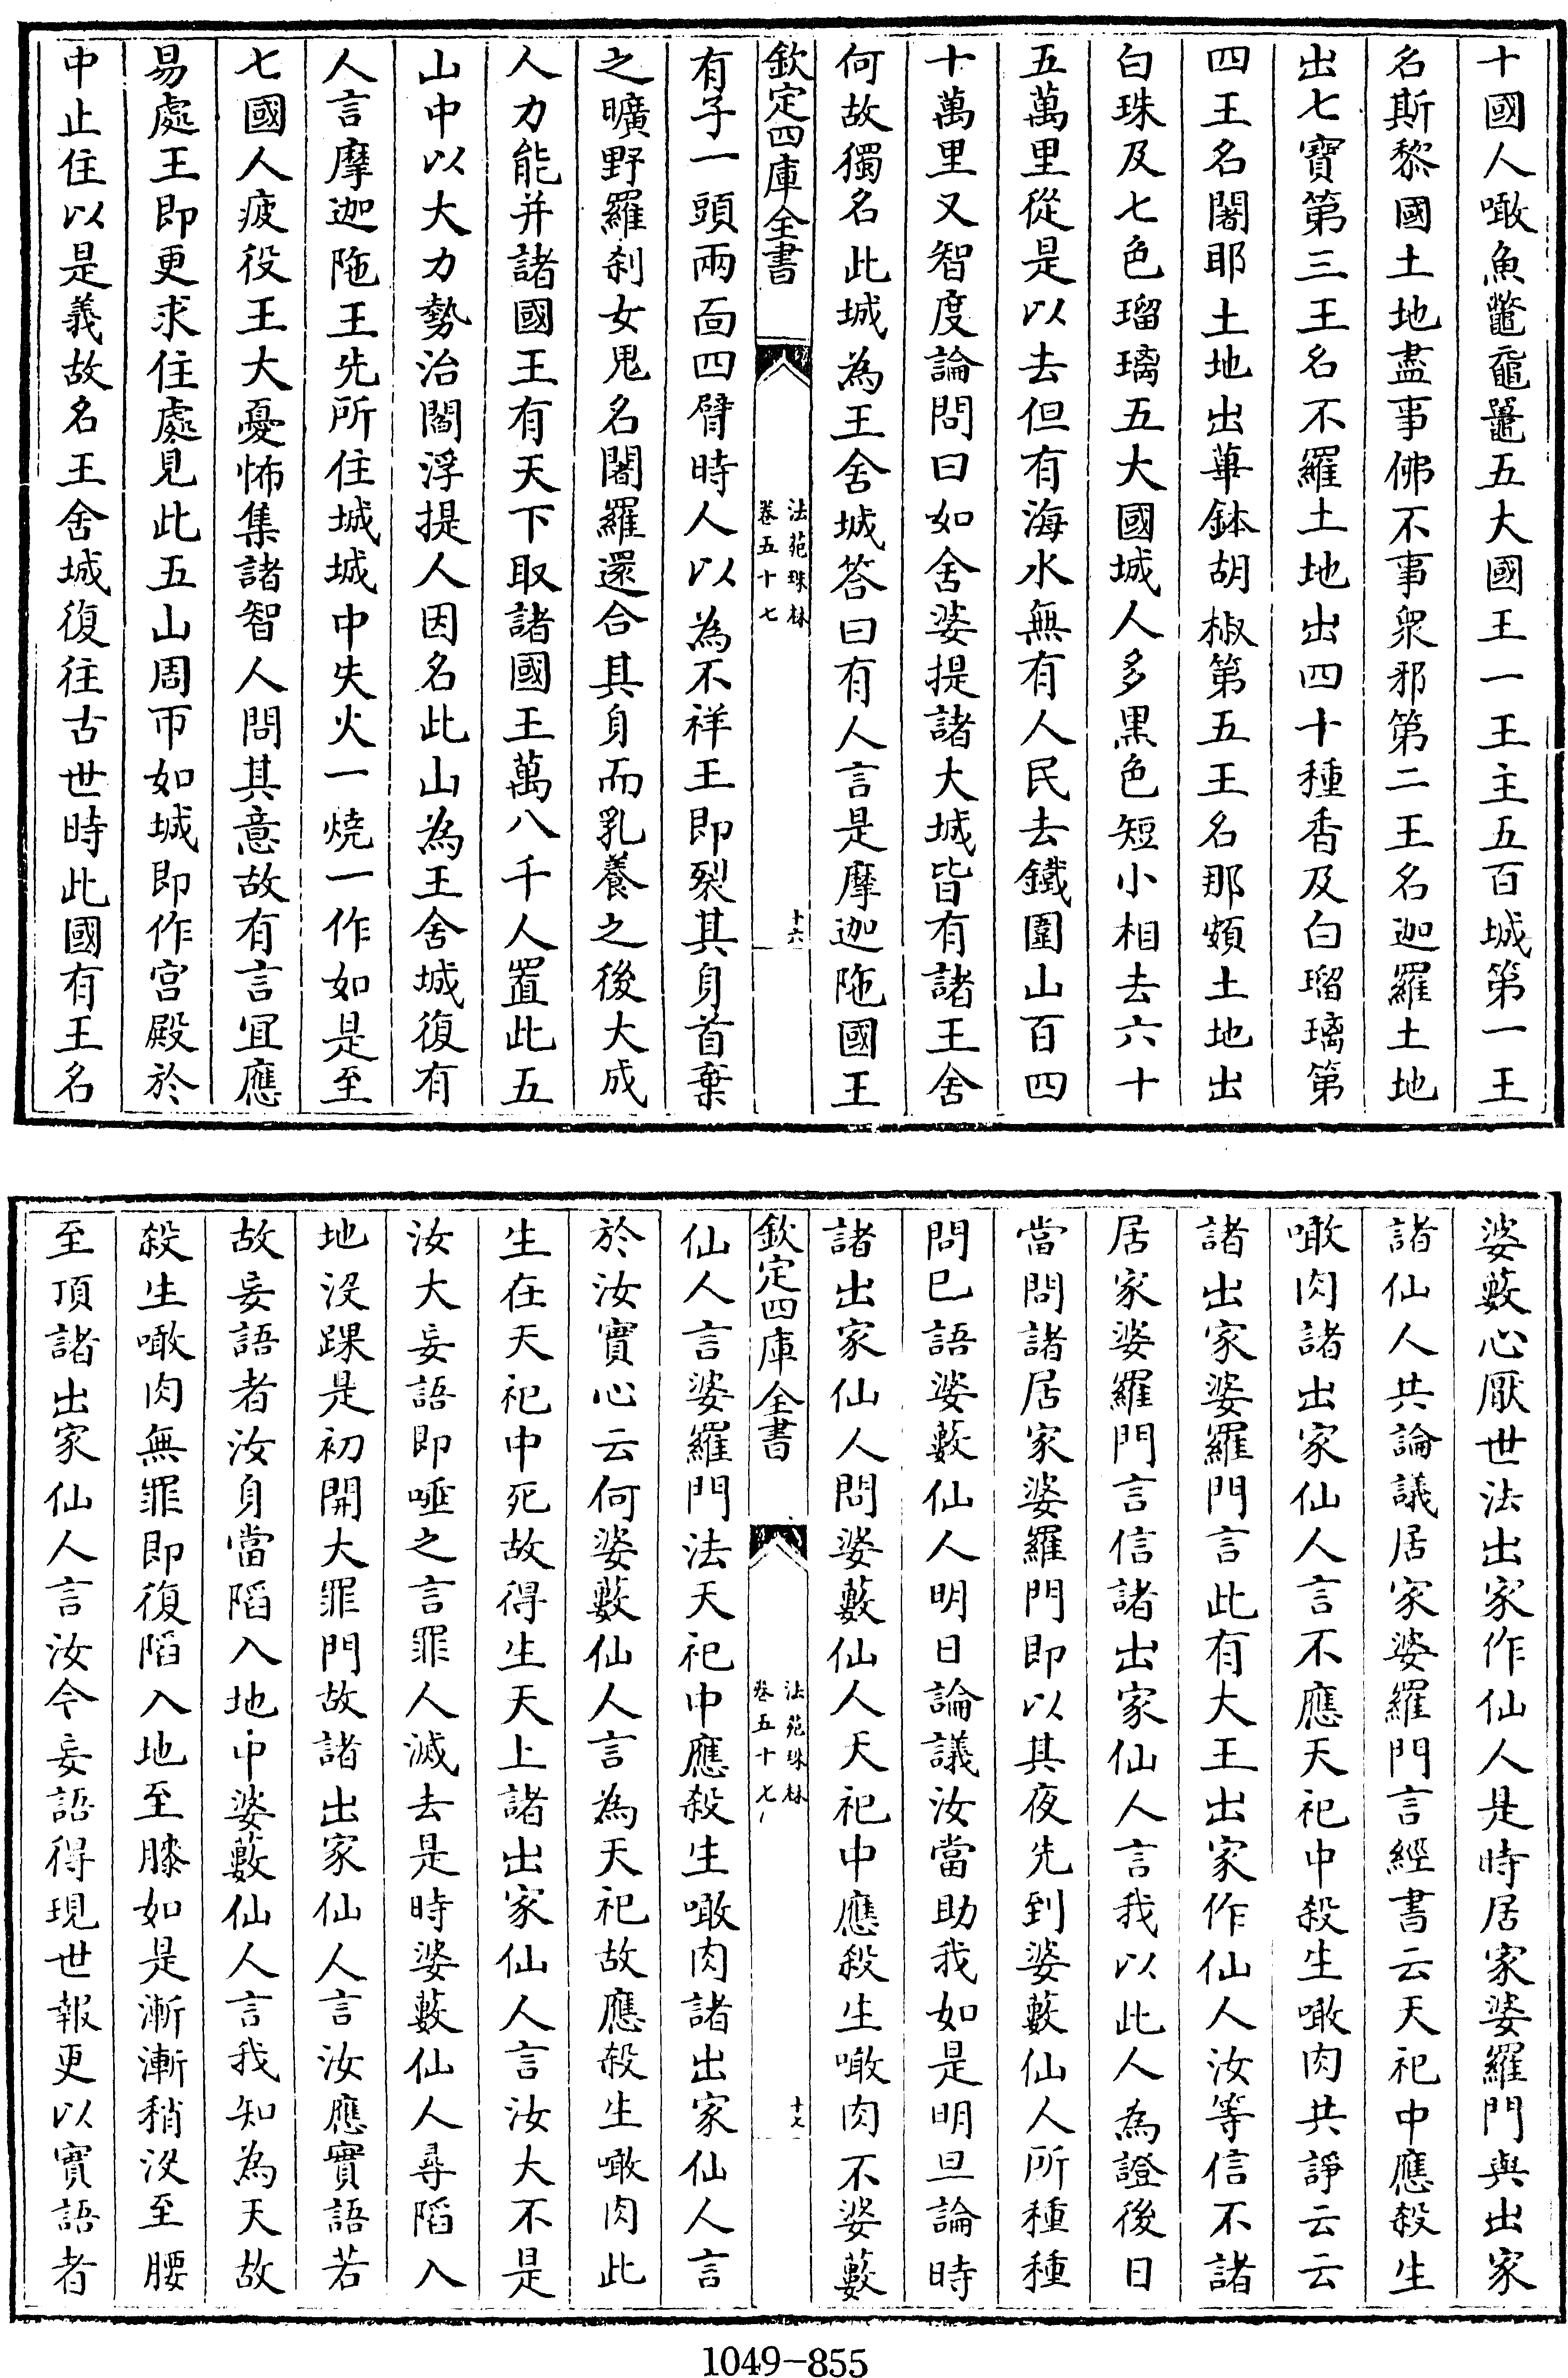 十國人噉魚鼈黿鼉五大國王一王主五百城第一王
名斯黎國土地盡事佛不事衆邪第二王名迦羅土地
出七寶第三王名不羅土地出四十種香及白瑠璃第
四王名闍耶土地出蓽鉢胡椒第五王名那頗土地出
白珠及七色瑠璃五大國城人多黒色短小相去六十
五萬里從是以去但有海水無有人民去鐵圍山百四
十萬里又智度論問曰如舍婆提諸大城皆有諸王舍
何故獨名此城為王舍城答曰有人言是摩迦陁國王
欽定四庫全書
法苑珠林
卷五十七
十六
有子一頭兩面四臂時人以為不祥王即裂其身首棄
之曠野羅刹女鬼名闍羅還合其身而乳養之後大成
人力能并諸國王有天下取諸國王萬八千人置此五
山中以大力勢治閻浮提人因名此山為王舍城復有
人言摩迦陁王先所住城城中失火一燒一作如是至
七國人疲役王大憂怖集諸智人問其意故有言宜應
易處王即更求住處見此五山周帀如城即作宫殿於
中止住以是義故名王舍城復往古世時此國有王名
婆藪心厭世法出家作仙人是時居家婆羅門與出家
諸仙人共論議居家婆羅門言經書云天祀中應殺生
噉肉諸出家仙人言不應天祀中殺生噉肉共諍云云
諸出家婆羅門言此有大王出家作仙人汝等信不諸
居家婆羅門言信諸出家仙人言我以此人為證後日
當問諸居家婆羅門即以其夜先到婆藪仙人所種種
問已語婆藪仙人明日論議汝當助我如是明旦論時
諸出家仙人問婆藪仙人天祀中應殺生噉肉不婆藪
欽定四庫全書
法苑珠林
卷五十七
十七
仙人言婆羅門法天祀中應殺生噉肉諸出家仙人言
於汝實心云何婆藪仙人言為天祀故應殺生噉肉此
生在天祀中死故得生天上諸出家仙人言汝大不是
汝大妄語即唾之言罪人滅去是時婆藪仙人尋陷入
地没踝是初開大罪門故諸出家仙人言汝應實語若
故妄語者汝身當陷入地中婆藪仙人言我知為天故
殺生噉肉無罪即復陷入地至膝如是漸漸稍没至腰
至頂諸出家仙人言汝今妄語得現世報更以實語者
1049-855